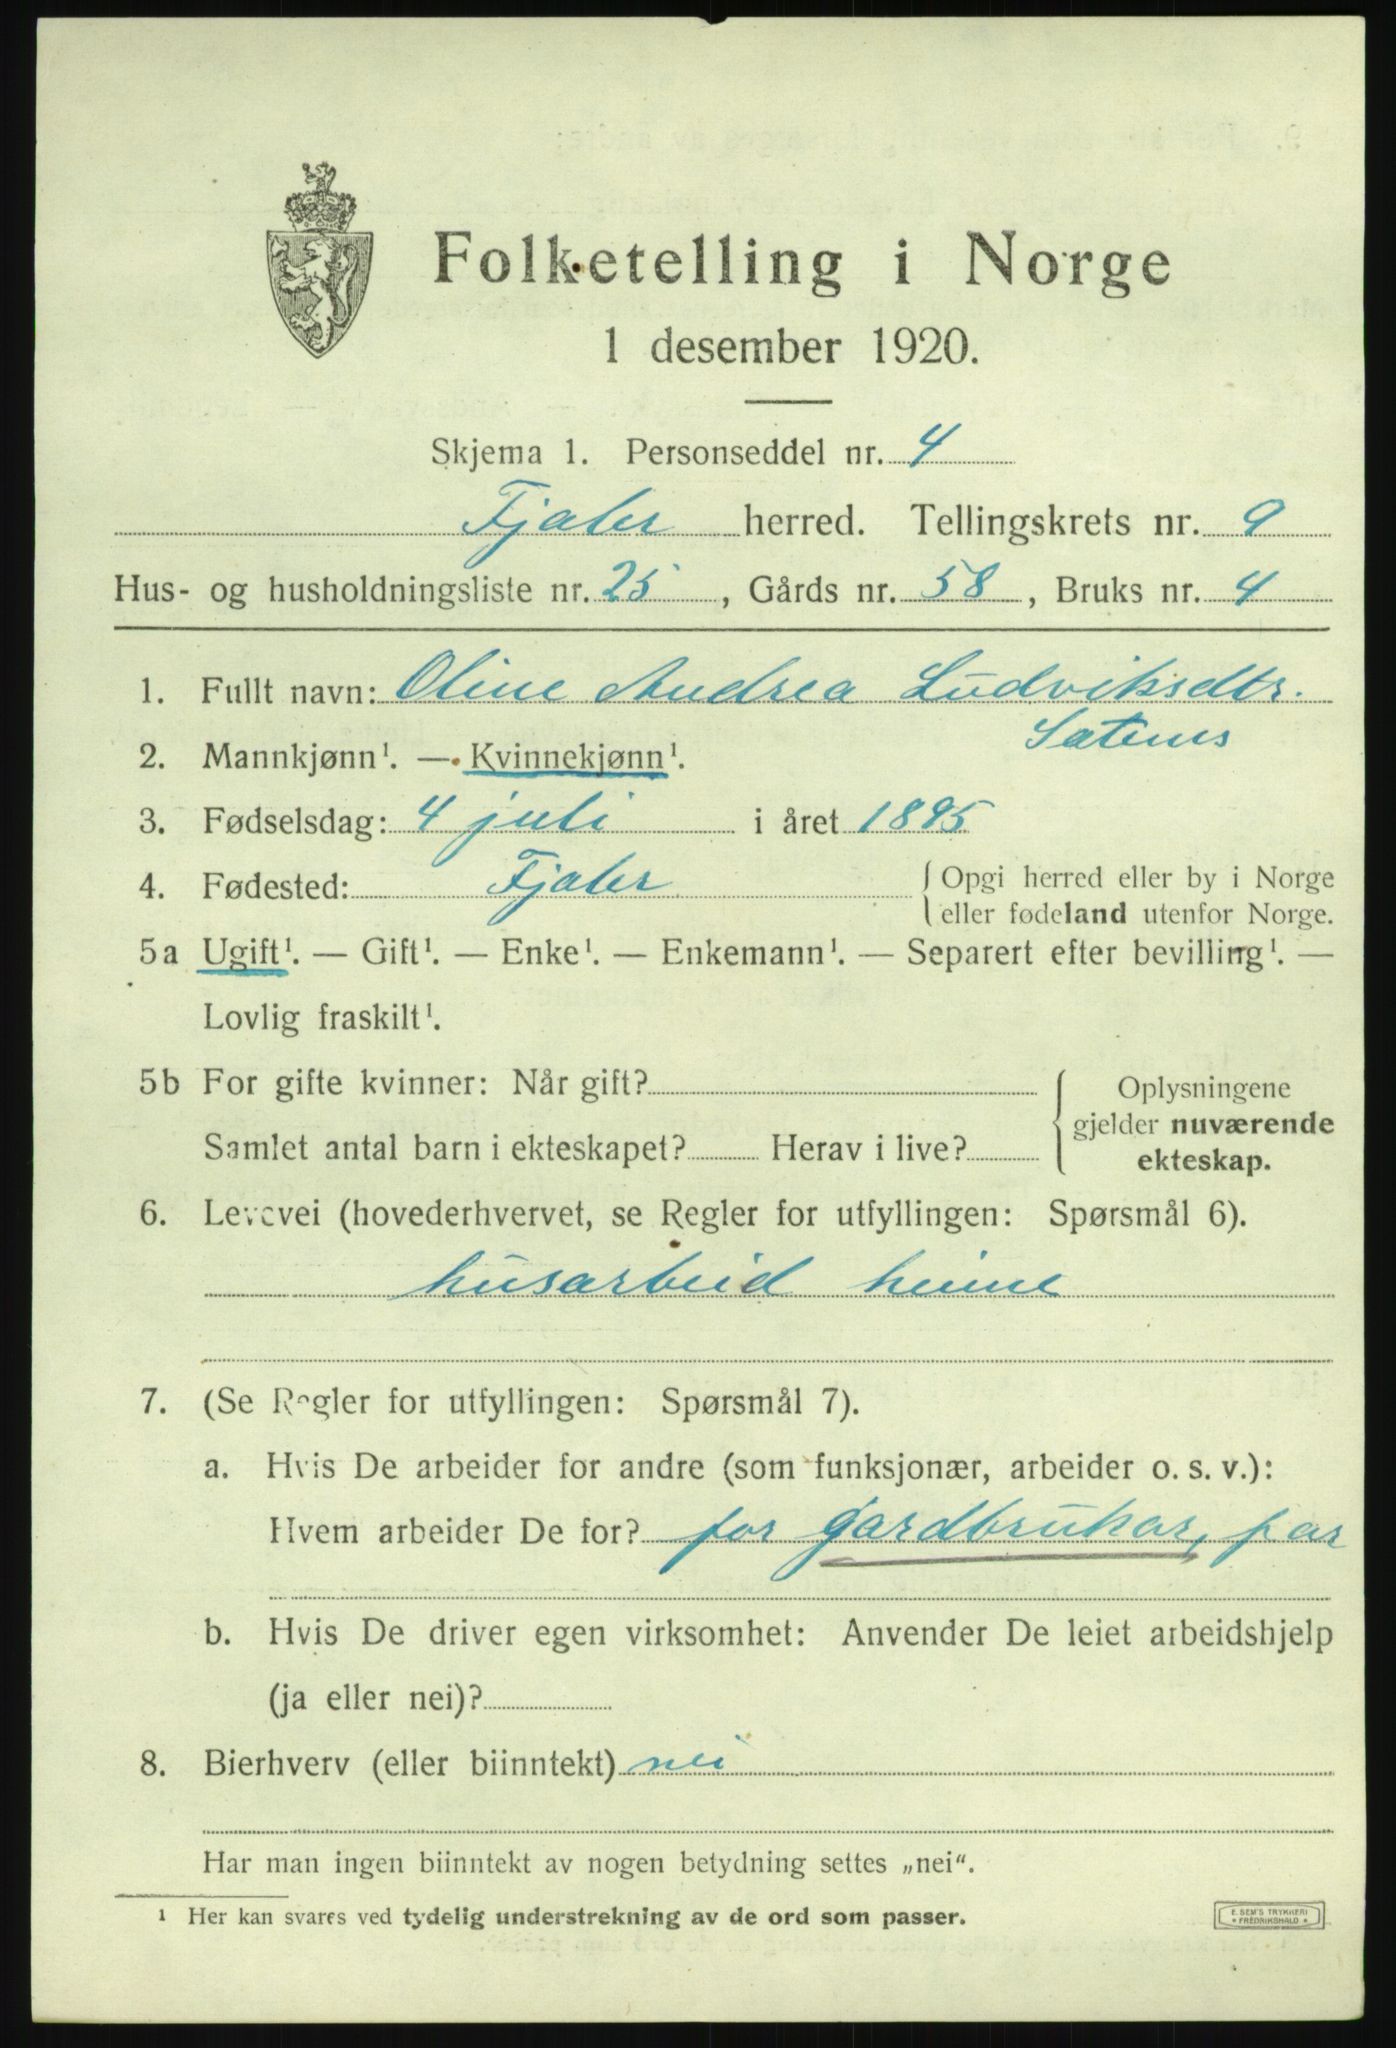 Folketelling i Norge
1 desember 1920.
Skjema 1. Personseddel nr. 4
Fjaler herred. Tellingskrets nr. 9
Hus- og husholdningsliste nr. 25, Gårds nr. 58, Bruks nr. 4
1. Fullt navn: Oline Andrea Ludviksdtr.
2. Mannkjønn¹. — Kvinnekjønn¹.
3. Fødselsdag: 4 juli i året 1895
4. Fødested: Fjaler { Opgi herred eller by i Norge
eller fødeland utenfor Norge.
5a Ugift¹. — Gift¹. — Enke¹. — Enkemann¹. — Separert efter bevilling¹. —
Lovlig fraskilt¹.
5b For gifte kvinner: Når gift? { Oplysningene
gjelder nuværende
Samlet antal barn i ekteskapet? Herav i live?
ekteskap.
6. Levevei (hovederhvervet, se Regler for utfyllingen: Spørsmål 6).
husarbeid heime
7. (Se Regler for utfyllingen: Spørsmål 7).
a. Hvis De arbeider for andre (som funksjonær, arbeider o. s. v.):
Hvem arbeider De for? for gardbrukar, far
b. Hvis De driver egen virksomhet: Anvender De leiet arbeidshjelp
(ja eller nei)?
8. Bierhverv (eller biinntekt) nei
Har man ingen biinntekt av nogen betydning settes „nei“.
¹ Her kan svares ved tydelig understrekning av de ord som passer.
E. SEM'S TRYKKERI
* FREDRIKSHALD *